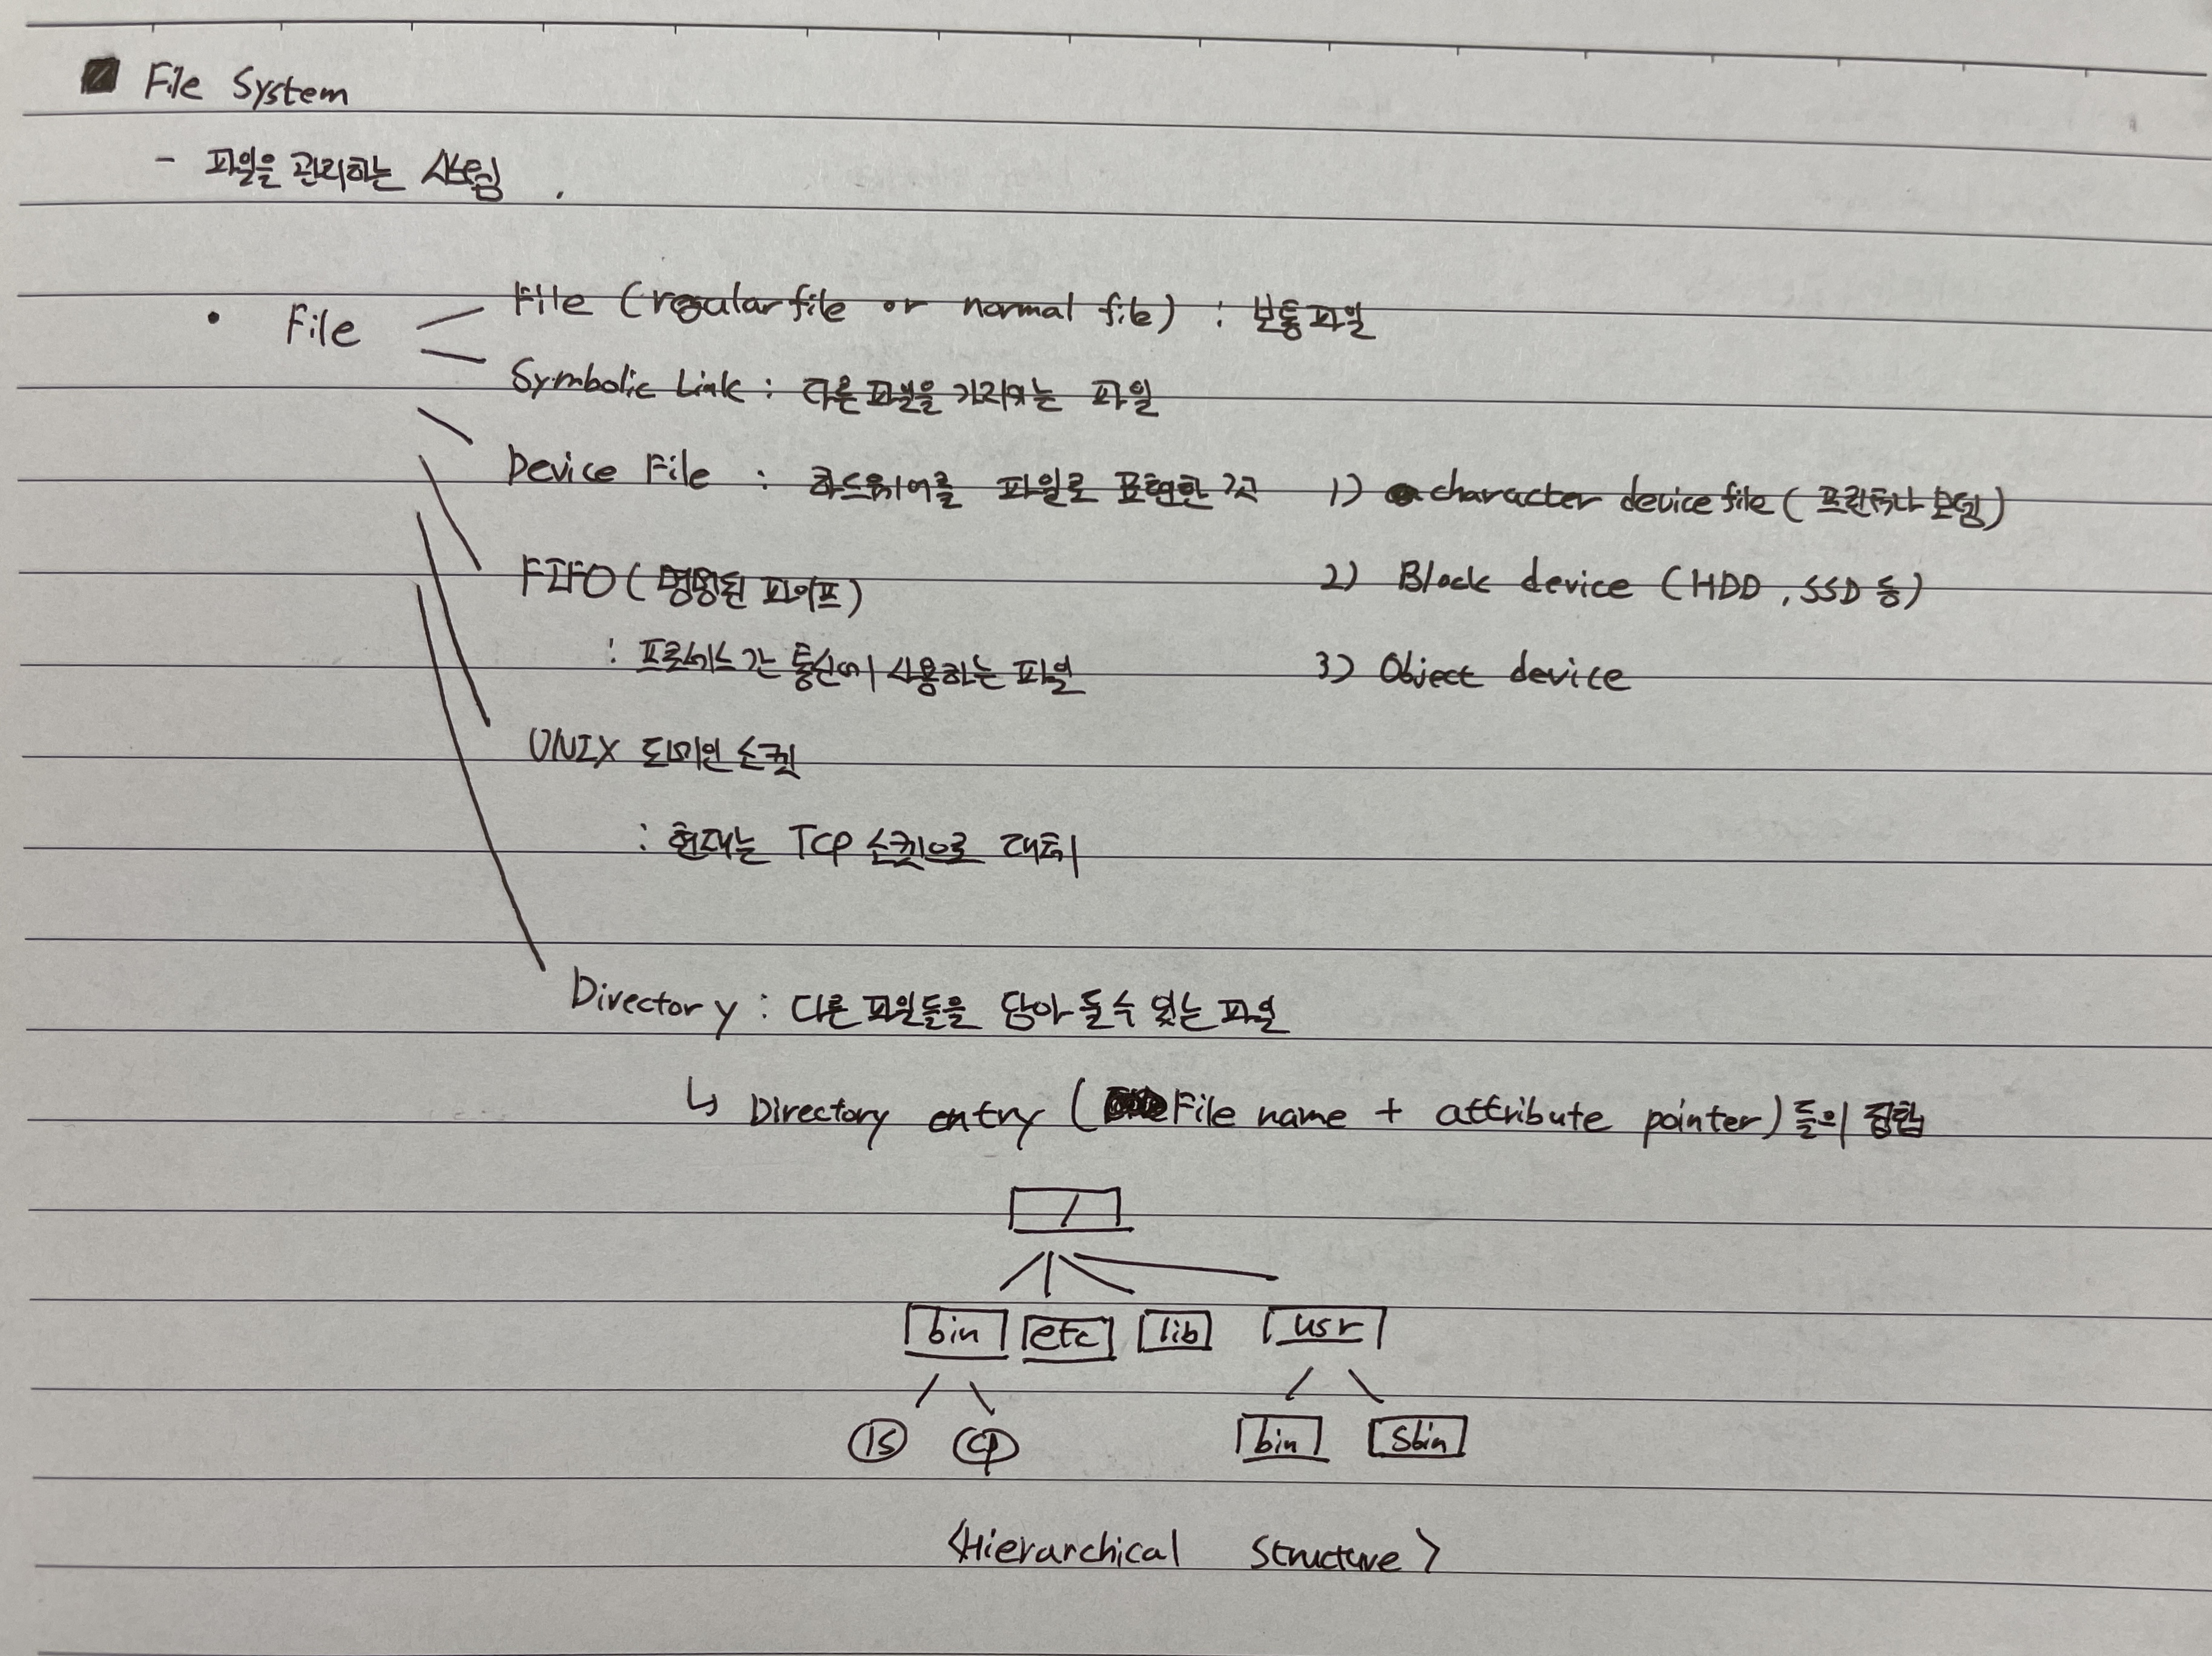 File System
- 파일을 관리하는 시스템
• File
File (regular file or normal file) : 보통파일
Symbolic Link : 다른 파일을 가리키는 파일
Device File : 하드웨어를 파일로 표현한 것 1) character device file ( 프린터나 모뎀)
FIFO ( 명명된 파이프) 2) Block device (HDD, SSD 등)
: 프로세스간 통신에 사용하는 파일 3) Object device
UNIX 도메인 소켓
: 현재는 TCP 소켓으로 대체
Directory : 다른 파일들을 담아 둘 수 있는 파일
↳ Directory entry ( File name + attribute pointer) 들의 집합
/
bin etc lib usr
ls cp bin sbin
<Hierarchical Structure>